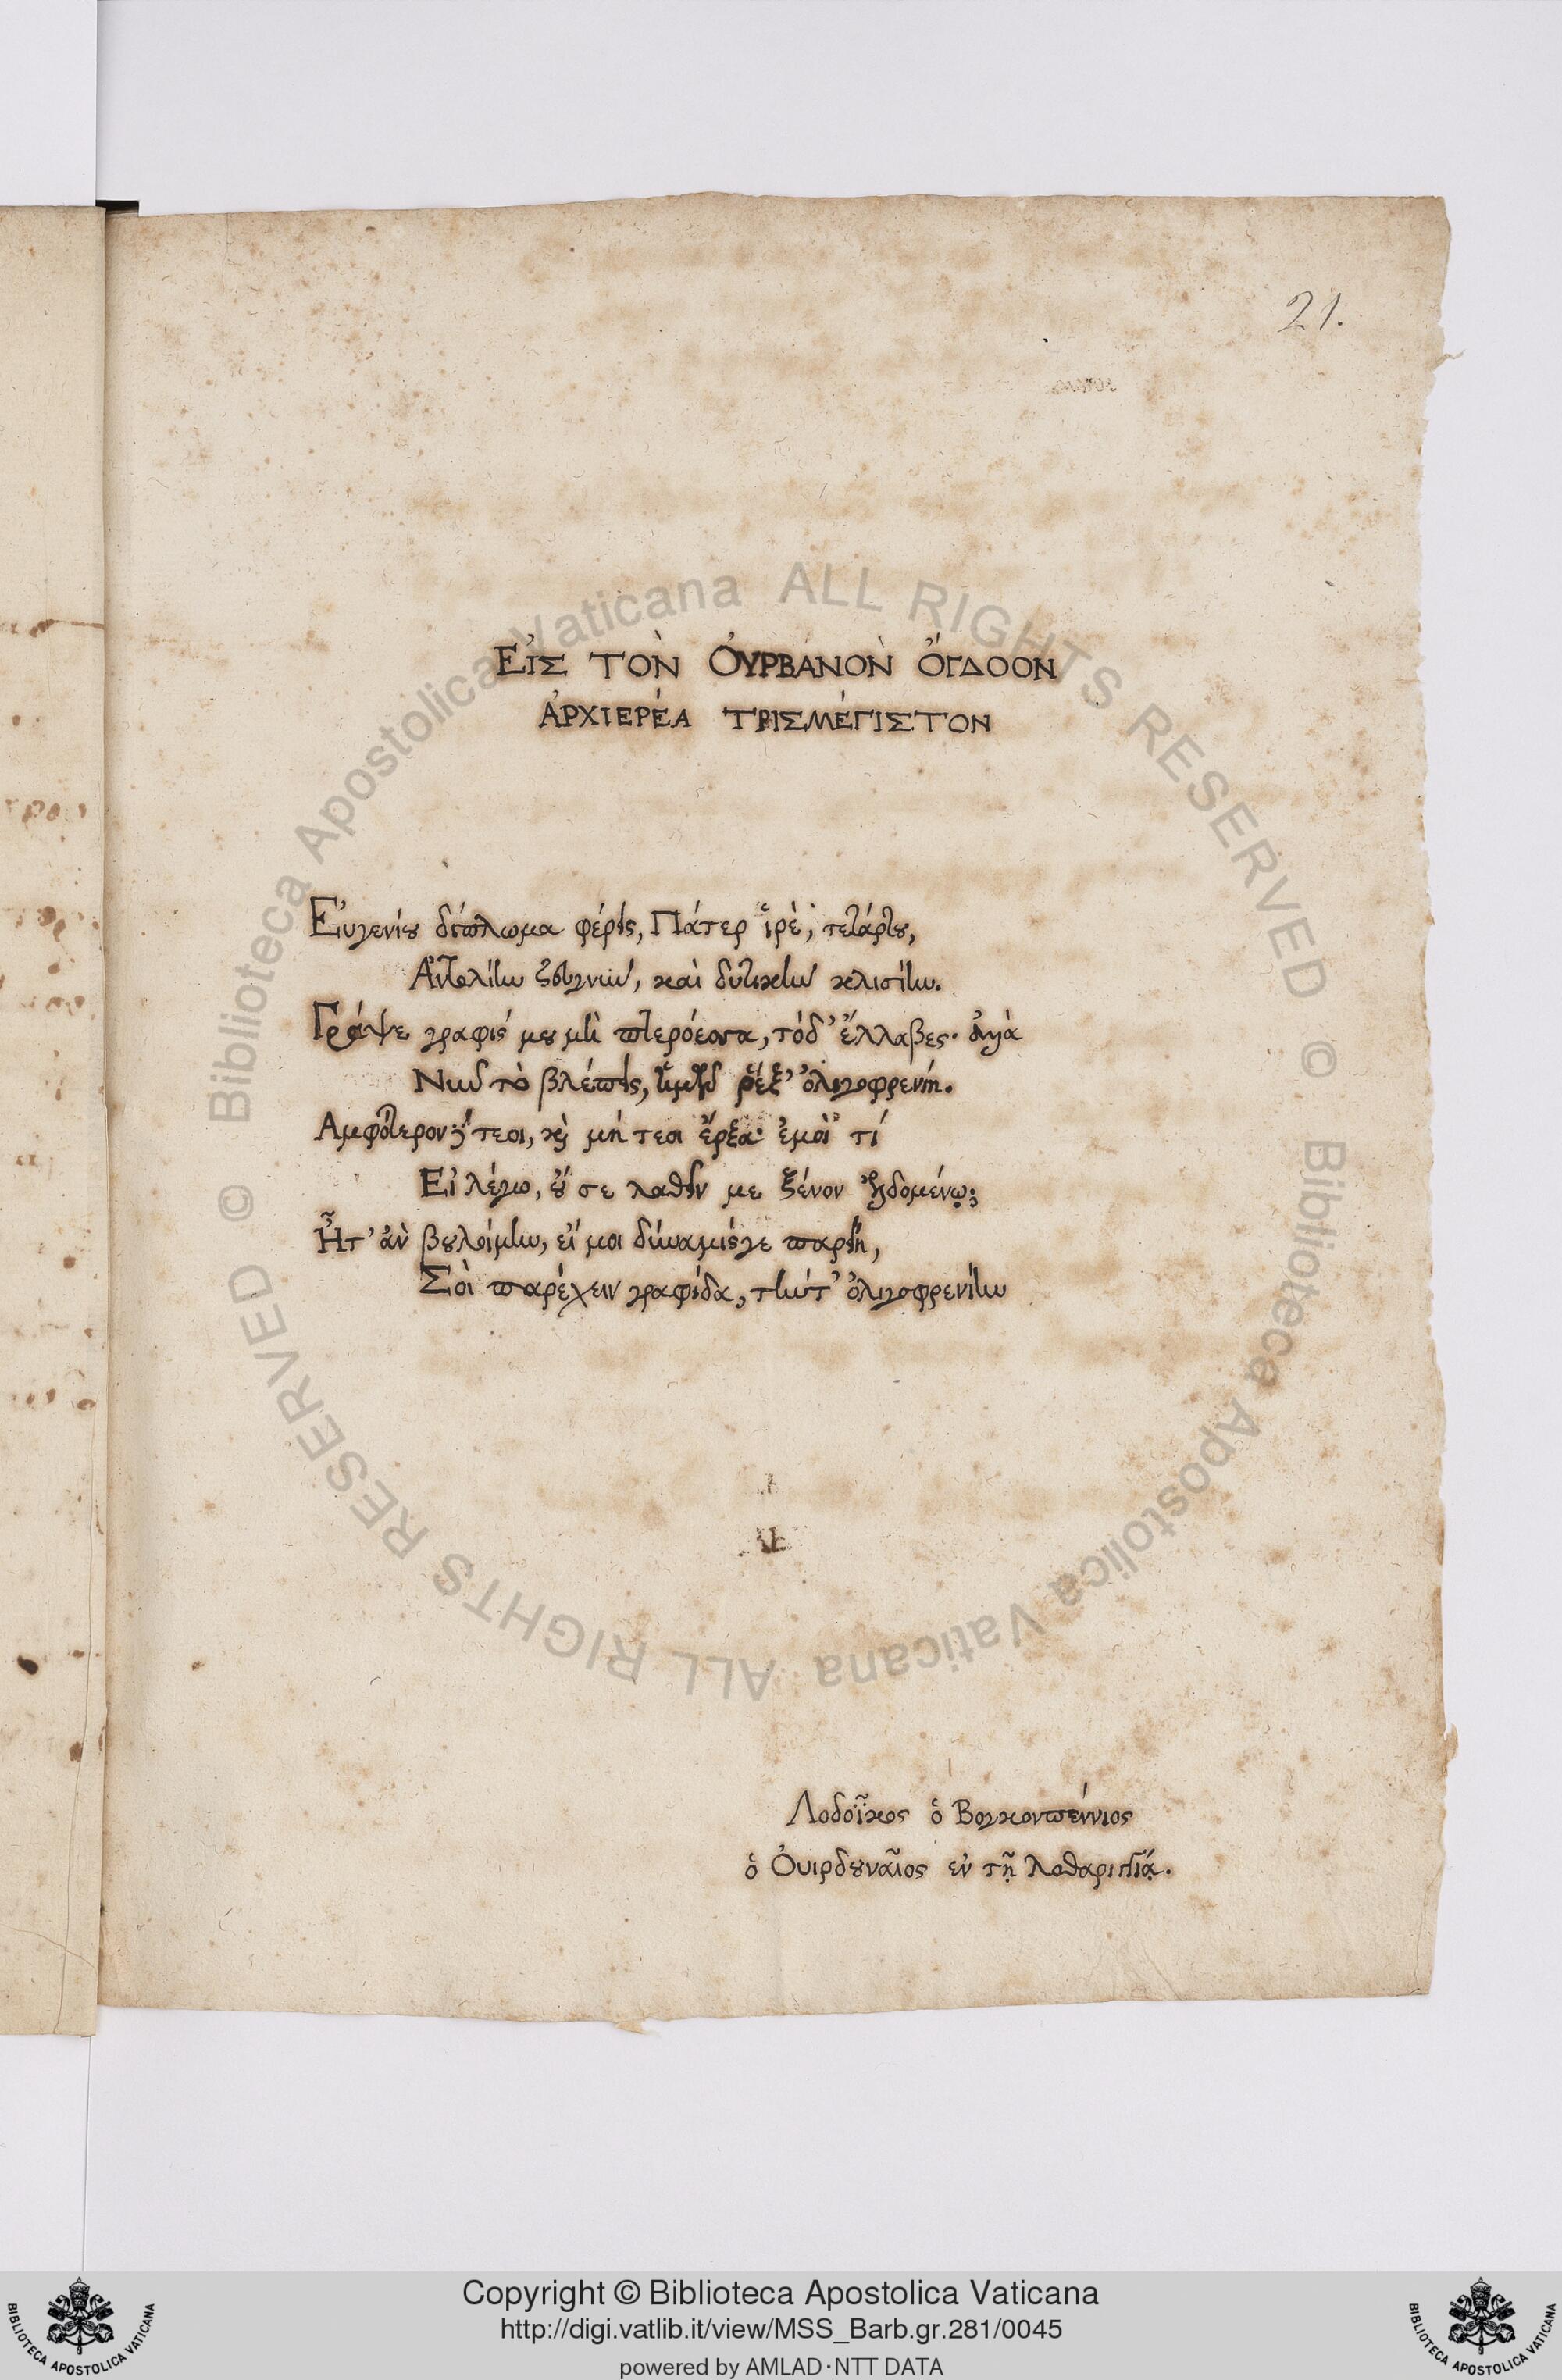 21.
ΕἸΣ ΤΟῚΝ ὈΥΡΒΑΝΟῚΝ ὌΓΔΟΟΝ
ἈΡΧΙΕΡΈΑ ΤΡΙΣΜΈΓΙΣΤΟΝ
Εὐγενίου δίπλωμα φέρεις, Πάτερ ἱρὲ, τετάρτου,
Ἀντολίην ζευγνὺν, καὶ δυτικὴν κλισίην.
Γράψε γραφίς μου μὴ πτερόεσσα, τόδ' ἔλλαβες·
Νῦν τὸ βλέπεις, ὀλιγοφρενίη.
Ἀμφότερον τεοι, καὶ μή τεοι ἔρξα· ἐμοὶ τί
Εἰ λέγω, οὔ σε λαθεῖν με ξένον ἡδομένῳ;
Ἦτ' ἂν βουλοίμην, εἴ μοι δύναμίς γε παρείη,
Σοὶ παρέχειν γραφίδα, τήν τ' ὀλιγοφρενίην
Λοδοῖκος ὁ Βογκοντέννιος
ὁ Ὀυιρδουναῖος ἐν τῇ Λοθαριγγίᾳ.
Biblioteca Apostolica Vaticana ALL RIGHTS RESERVED ©
Biblioteca Apostolica Vaticana ALL RIGHTS RESERVED ©
Copyright © Biblioteca Apostolica Vaticana
http://digi.vatlib.it/view/MSS_Barb.gr.281/0045
powered by AMLAD·NTT DATA
BIBLIOTECA APOSTOLICA VATICANA
BIBLIOTECA APOSTOLICA VATICANA